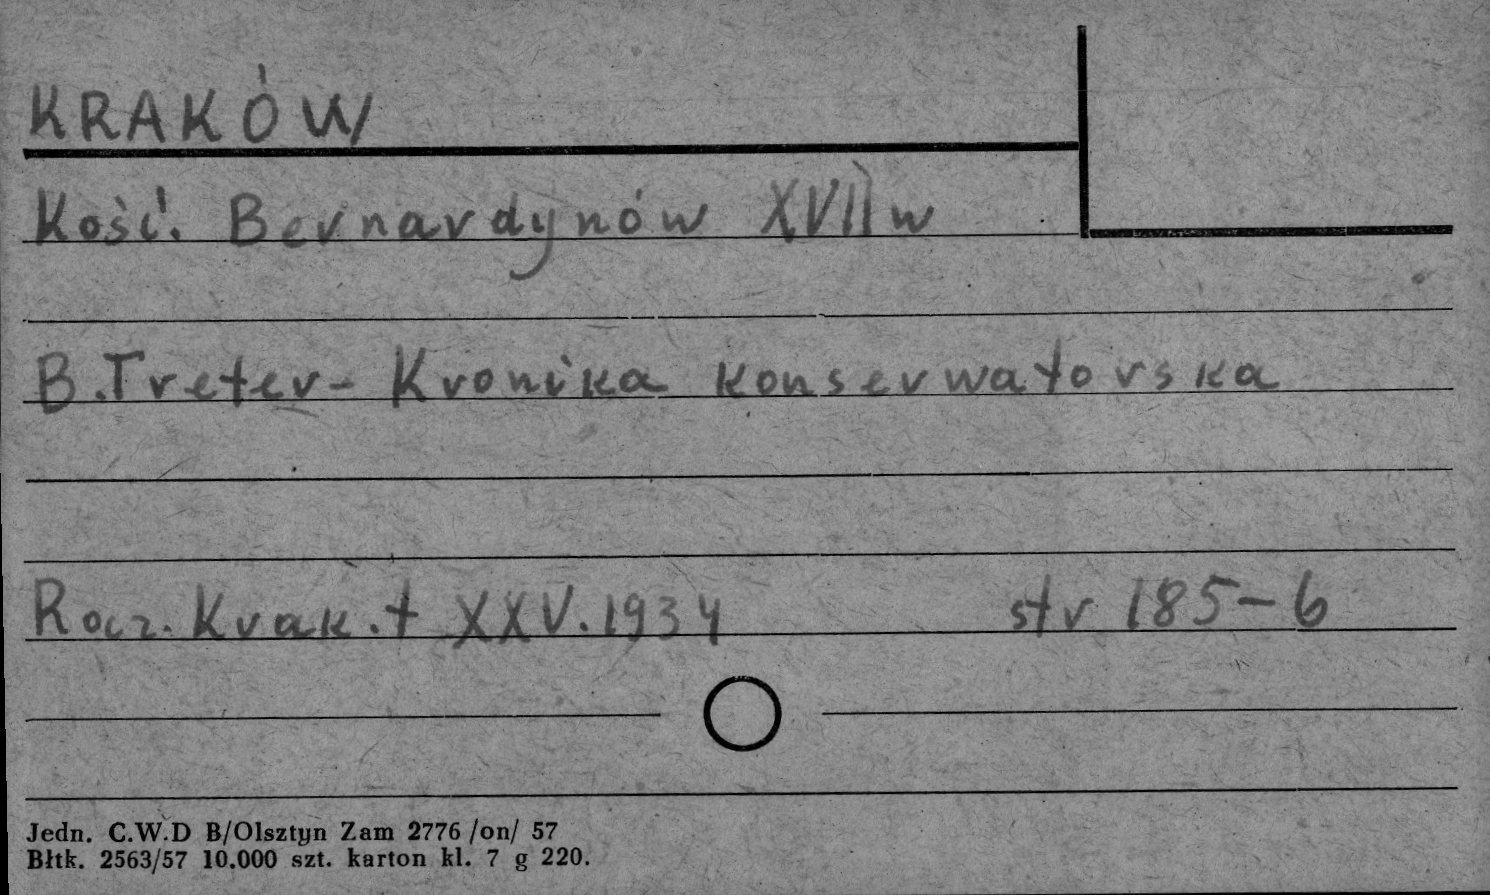 KRAKÓW
Kość. Bernardynów XVII w
B. Treter - Kronika konserwatorska
Rocz. Krak. t XXV. 1934 str 185-6
Jedn. C.W.D B/Olsztyn Zam 2776 /on/ 57
Błtk. 2563/57 10.000 szt. karton kl. 7 g 220.